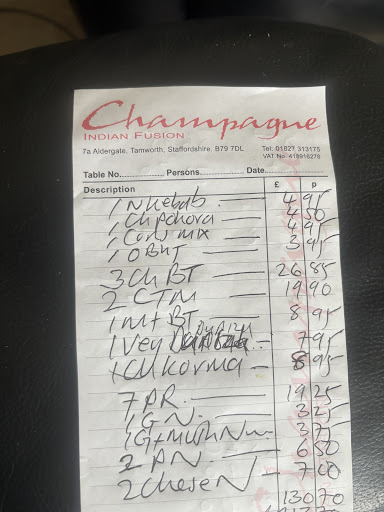 Champagne
INDIAN FUSION
7a Aldergate, Tamworth, Staffordshire, B79 7DL Tel: 01827 313175
VAT No. 418918278
Table No.............. Persons.............. Date..............
Description £ p
1 N kebab 4 95
1 Ch Pohora 4 50
1 Cons mix 4 95
1 O Bht 3 95
3 Ch BT 26 85
2 CTM 19 90
1 Mt BT 8 95
1 Veg 7 95
1 Ch korma 8 95
7 AR 19 25
1 G N 3 25
1 G+mush N 3 75
2 PN 6 50
2 Chese N 7 00
130 70